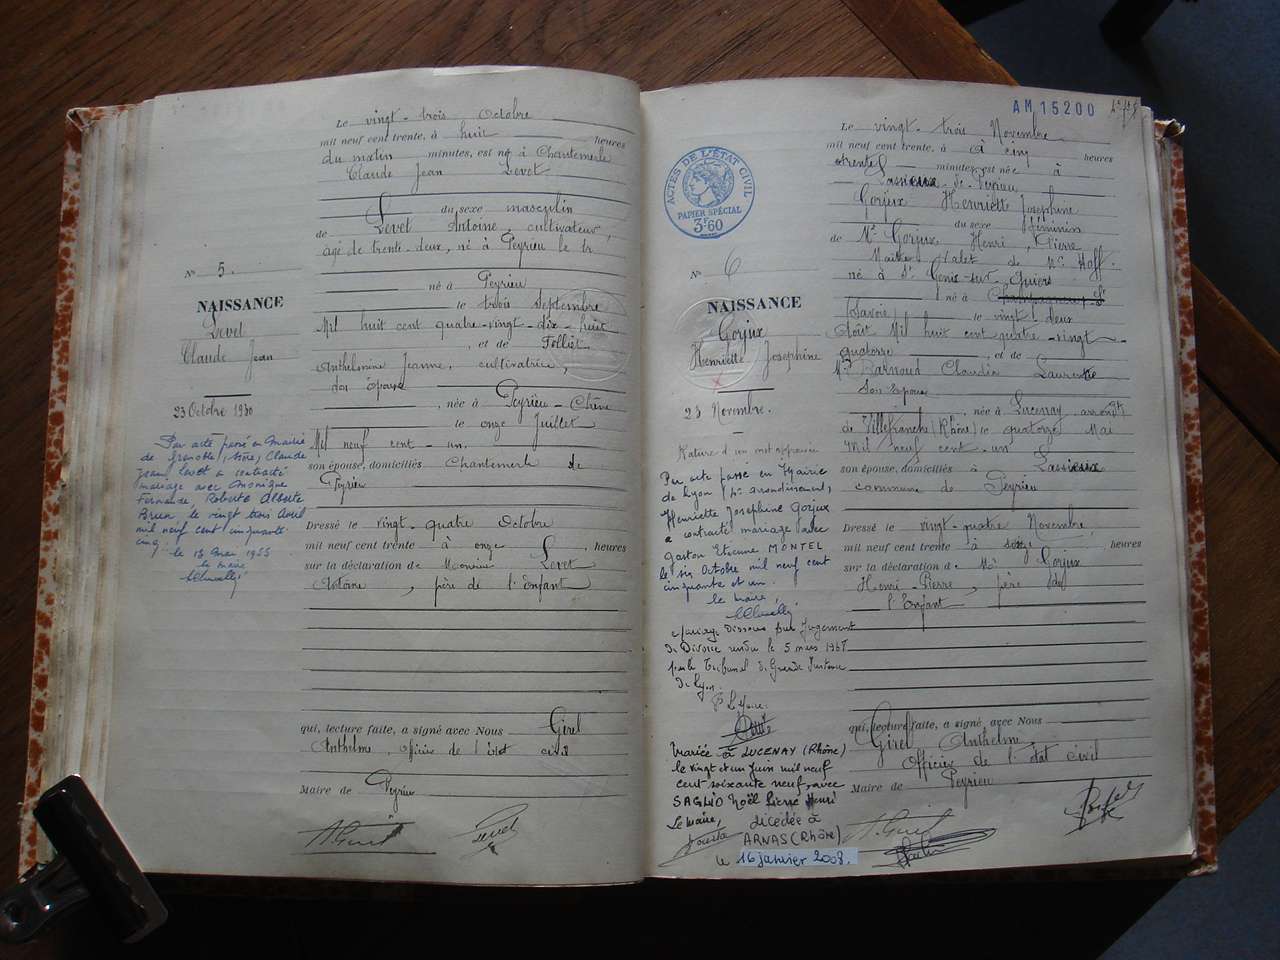 Le vingt-trois Octobre
mil neuf cent trente, à huit heures
du matin minutes, est né à Chantemerle
Claude Jean Levet
du sexe masculin
de Levet Antoine, cultivateur,
âgé de trente-deux, né à Peyrieu le tr
né à Peyrieu
le trois septembre
Mil huit cent quatre-vingt-dix-huit
, et de Folliet
Anthelmine Jeanne, cultivatrice,
son épouse
, née à Peyrieu
le onze Juillet
Mil neuf cent un,
son épouse, domiciliés Chantemerle de
Peyrieu
Dressé le vingt-quatre Octobre
mil neuf cent trente à onze, heures
sur la déclaration de Monsieur Levet
Antoine, père de l'Enfant
qui, lecture faite, a signé avec Nous Girel
Anthelme, Officier de l'état civil
Maire de Peyrieu
N° 5.
NAISSANCE
Levet
Claude Jean
23 Octobre 1930
Par acte passé en Mairie
de Grenoble (Isère), Claude
Jean Levet a contracté
mariage avec Monique
Fernande, Roberte Alberte
Brun le vingt trois Avril
mil neuf cent cinquante
cinq.
le 13 mai 1955
le maire
AM 15200
ACTES DE L'ÉTAT CIVIL
PAPIER SPÉCIAL
3F60
Le vingt-trois Novembre
mil neuf cent trente, à cinq heures
trente minutes, est née à
Lassieux de Peyrieu
Gorjux Henriette Josephine
du sexe féminin
de Mr Gorjux Henri, Pierre
Maître Valet de Mr Hoff.
né à St Genis-sur-Guiers
né à
Savoie le vingt deux
Août Mil huit cent quatre-vingt-
quatorze, et de
Barnoud Claudia Laurentine
Son épouse
, née à Lucenay, arrondt
de Villefranche (Rhône) le quatorze Mai
Mil neuf cent un
son épouse, domiciliés à Lassieux
commune de Peyrieu
Dressé le vingt-quatre Novembre
mil neuf cent trente à six, heures
sur la déclaration de Mr Gorjux
Henri-Pierre, père de
l'Enfant
qui, lecture faite, a signé avec Nous
Girel Anthelme
Officier de l'état civil
Maire de Peyrieu
N° 6
NAISSANCE
Gorjux
Henriette Josephine
23 Novembre.
Rature d'un mot approuvée
Par acte passé en Mairie
de Lyon arrondissement,
Henriette Josephine Gorjux
a contracté mariage avec
Gaston Etienne MONTEL
le six Octobre mil neuf cent
cinquante et un.
le maire,
Mariage dissous par Jugement
de Divorce rendu le 5 mars 1967
par le Tribunal de Grande Instance
de Lyon.
P. Le Maire.
Mariée à LUCENAY (Rhône)
le vingt et un Juin mil neuf
cent soixante neuf, avec
SAGLIO Noël Pierre Henri
Le Maire,
décédée à
ARNAS (Rhône)
le 16 janvier 2008.